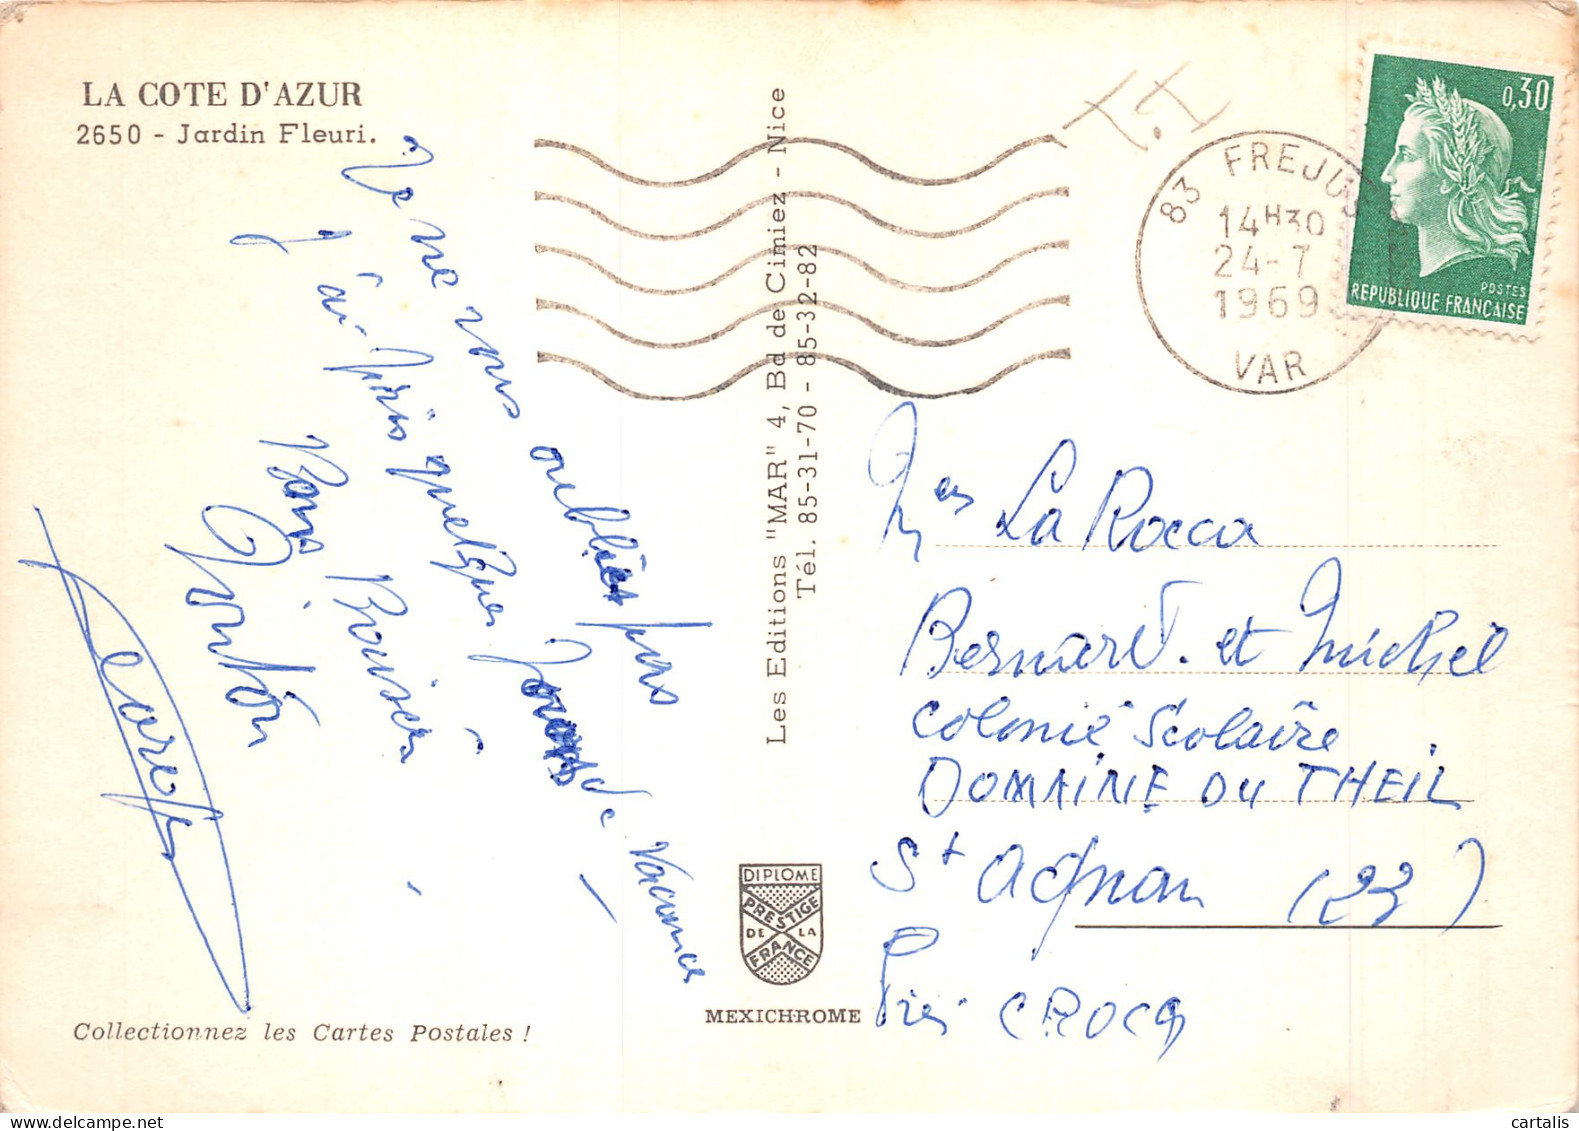 LA COTE D'AZUR
2650 - Jardin Fleuri.
Je ne vous oubliès pas
J'ai pris quelques Jours de vacance
Bons Baisers
Tonton
Les Editions "MAR" 4, Bd de Cimiez - Nice
Tél. 85-31-70 - 85-32-82
T.I
83 FREJUS
14H30
24-7
1969
VAR
0,30
POSTES
REPUBLIQUE FRANÇAISE
La Rocca
Bernard. et Michel
Colonie Scolaire
DOMAINE DU THEIL
St Agnan (23)
Près CROCQ
DIPLOME
PRESTIGE
DE LA
FRANCE
MEXICHROME
Collectionnez les Cartes Postales !
cartalis